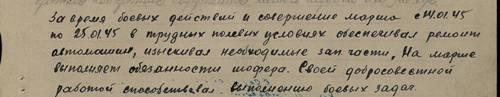 За время боевых действий и совершение марша с 14.01.45
по 25.01.45 в трудных полевых условиях обеспечивал ремонт
автомашин, изыскивая необходимые зап. части, На марше
выполняет обязанности шофера. Своей добросовестной
работой способствовал выполнению боевых задач.